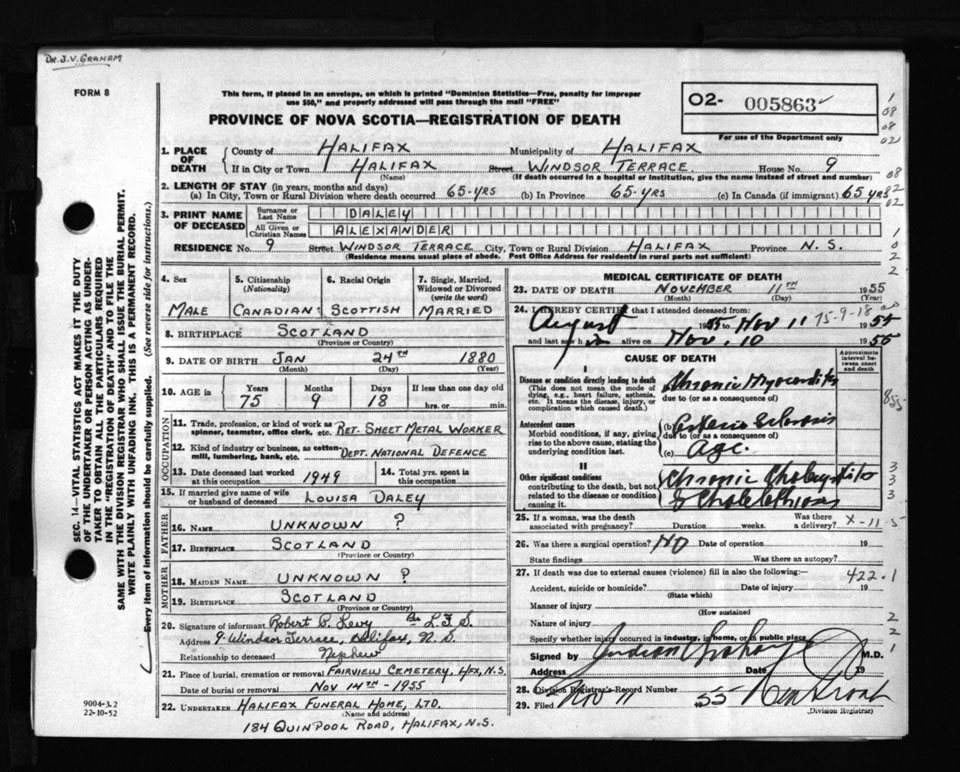 DR. J. V. GRAHAM
FORM 8
This form, if placed in an envelope, on which is printed "Dominion Statistics—Free, penalty for improper
use $50," and properly addressed will pass through the mail "FREE"
PROVINCE OF NOVA SCOTIA—REGISTRATION OF DEATH
O2- 005863
For use of the Department only
1. PLACE OF DEATH { County of HALIFAX Municipality of HALIFAX
If in City or Town HALIFAX Street WINDSOR TERRACE House No. 9
(Name) (If death occurred in a hospital or institution, give the name instead of street and number)
2. LENGTH OF STAY (in years, months and days)
(a) In City, Town or Rural Division where death occurred 65-YRS (b) In Province 65-YRS (c) In Canada (if immigrant) 65 YRS
3. PRINT NAME OF DECEASED { Surname or Last Name DALEY
All Given or Christian Names ALEXANDER
RESIDENCE No. 9 Street WINDSOR TERRACE City, Town or Rural Division HALIFAX Province N.S.
(Residence means usual place of abode. Post Office Address for residents in rural parts not sufficient)
4. Sex
MALE
5. Citizenship (Nationality)
CANADIAN
6. Racial Origin
SCOTTISH
7. Single, Married, Widowed or Divorced (write the word)
MARRIED
8. BIRTHPLACE SCOTLAND
(Province or Country)
9. DATE OF BIRTH JAN 24TH 1880
(Month) (Day) (Year)
10. AGE is { Years Months Days If less than one day old
75 9 18 hrs. or min.
OCCUPATION
11. Trade, profession, or kind of work as spinner, teamster, office clerk, etc. RET. SHEET METAL WORKER
12. Kind of industry or business, as cotton mill, lumbering, bank, etc. DEPT. NATIONAL DEFENCE
13. Date deceased last worked at this occupation 1949
14. Total yrs. spent in this occupation
15. If married give name of wife or husband of deceased LOUISA DALEY
FATHER
16. NAME UNKNOWN ?
17. BIRTHPLACE SCOTLAND
(Province or Country)
MOTHER
18. MAIDEN NAME UNKNOWN ?
19. BIRTHPLACE SCOTLAND
(Province or Country)
20. Signature of informant Robert C. Levy Per L.F.S.
Address 9 Windsor Terrace, Halifax, N.S.
Relationship to deceased Nephew
21. Place of burial, cremation or removal FAIRVIEW CEMETERY, HFX, N.S.
Date of burial or removal NOV 14TH - 1955
22. UNDERTAKER HALIFAX FUNERAL HOME, LTD.
(Name and address)
184 QUINPOOL ROAD, HALIFAX, N.S.
MEDICAL CERTIFICATE OF DEATH
23. DATE OF DEATH NOVEMBER 11TH 1955
(Month) (Day) (Year)
24. I HEREBY CERTIFY that I attended deceased from:
August 1955 to Nov 11 1955
75-9-18
and last saw him alive on Nov. 10 1955
CAUSE OF DEATH
Approximate interval between onset and death
I
Disease or condition directly leading to death
(This does not mean the mode of dying, e.g., heart failure, asthenia, etc. It means the disease, injury, or complication which caused death.)
Chronic Myocarditis
due to (or as a consequence of)
Antecedent causes
Morbid conditions, if any, giving rise to the above cause, stating the underlying condition last.
(b) Arterio Sclerosis
due to (or as a consequence of)
(c) Age
II
Other significant conditions
contributing to the death, but not related to the disease or condition causing it.
Chronic Cholecystitis
& Cholelithiasis
25. If a woman, was the death associated with pregnancy? Duration weeks. Was there a delivery? X-11-5
26. Was there a surgical operation? NO Date of operation 19
State findings Was there an autopsy?
27. If death was due to external causes (violence) fill in also the following:— 422.1
Accident, suicide or homicide? Date of injury 19
(State which)
Manner of injury
(How sustained
Nature of injury
Specify whether injury occurred in industry, in home, or in public place
Signed by M.D.
Address Date 19
28. Division Registrar's Record Number
29. Filed Nov 11 1955
(Division Registrar)
SEC. 14—VITAL STATISTICS ACT MAKES IT THE DUTY
OF THE UNDERTAKER OR PERSON ACTING AS UNDER-
TAKER TO OBTAIN ALL THE PARTICULARS REQUIRED
IN THE "REGISTRATION OF DEATH" AND TO FILE THE
SAME WITH THE DIVISION REGISTRAR WHO SHALL ISSUE THE BURIAL PERMIT.
WRITE PLAINLY WITH UNFADING INK. THIS IS A PERMANENT RECORD.
Every item of information should be carefully supplied. (See reverse side for instructions.)
9004-3.2
22-10-52